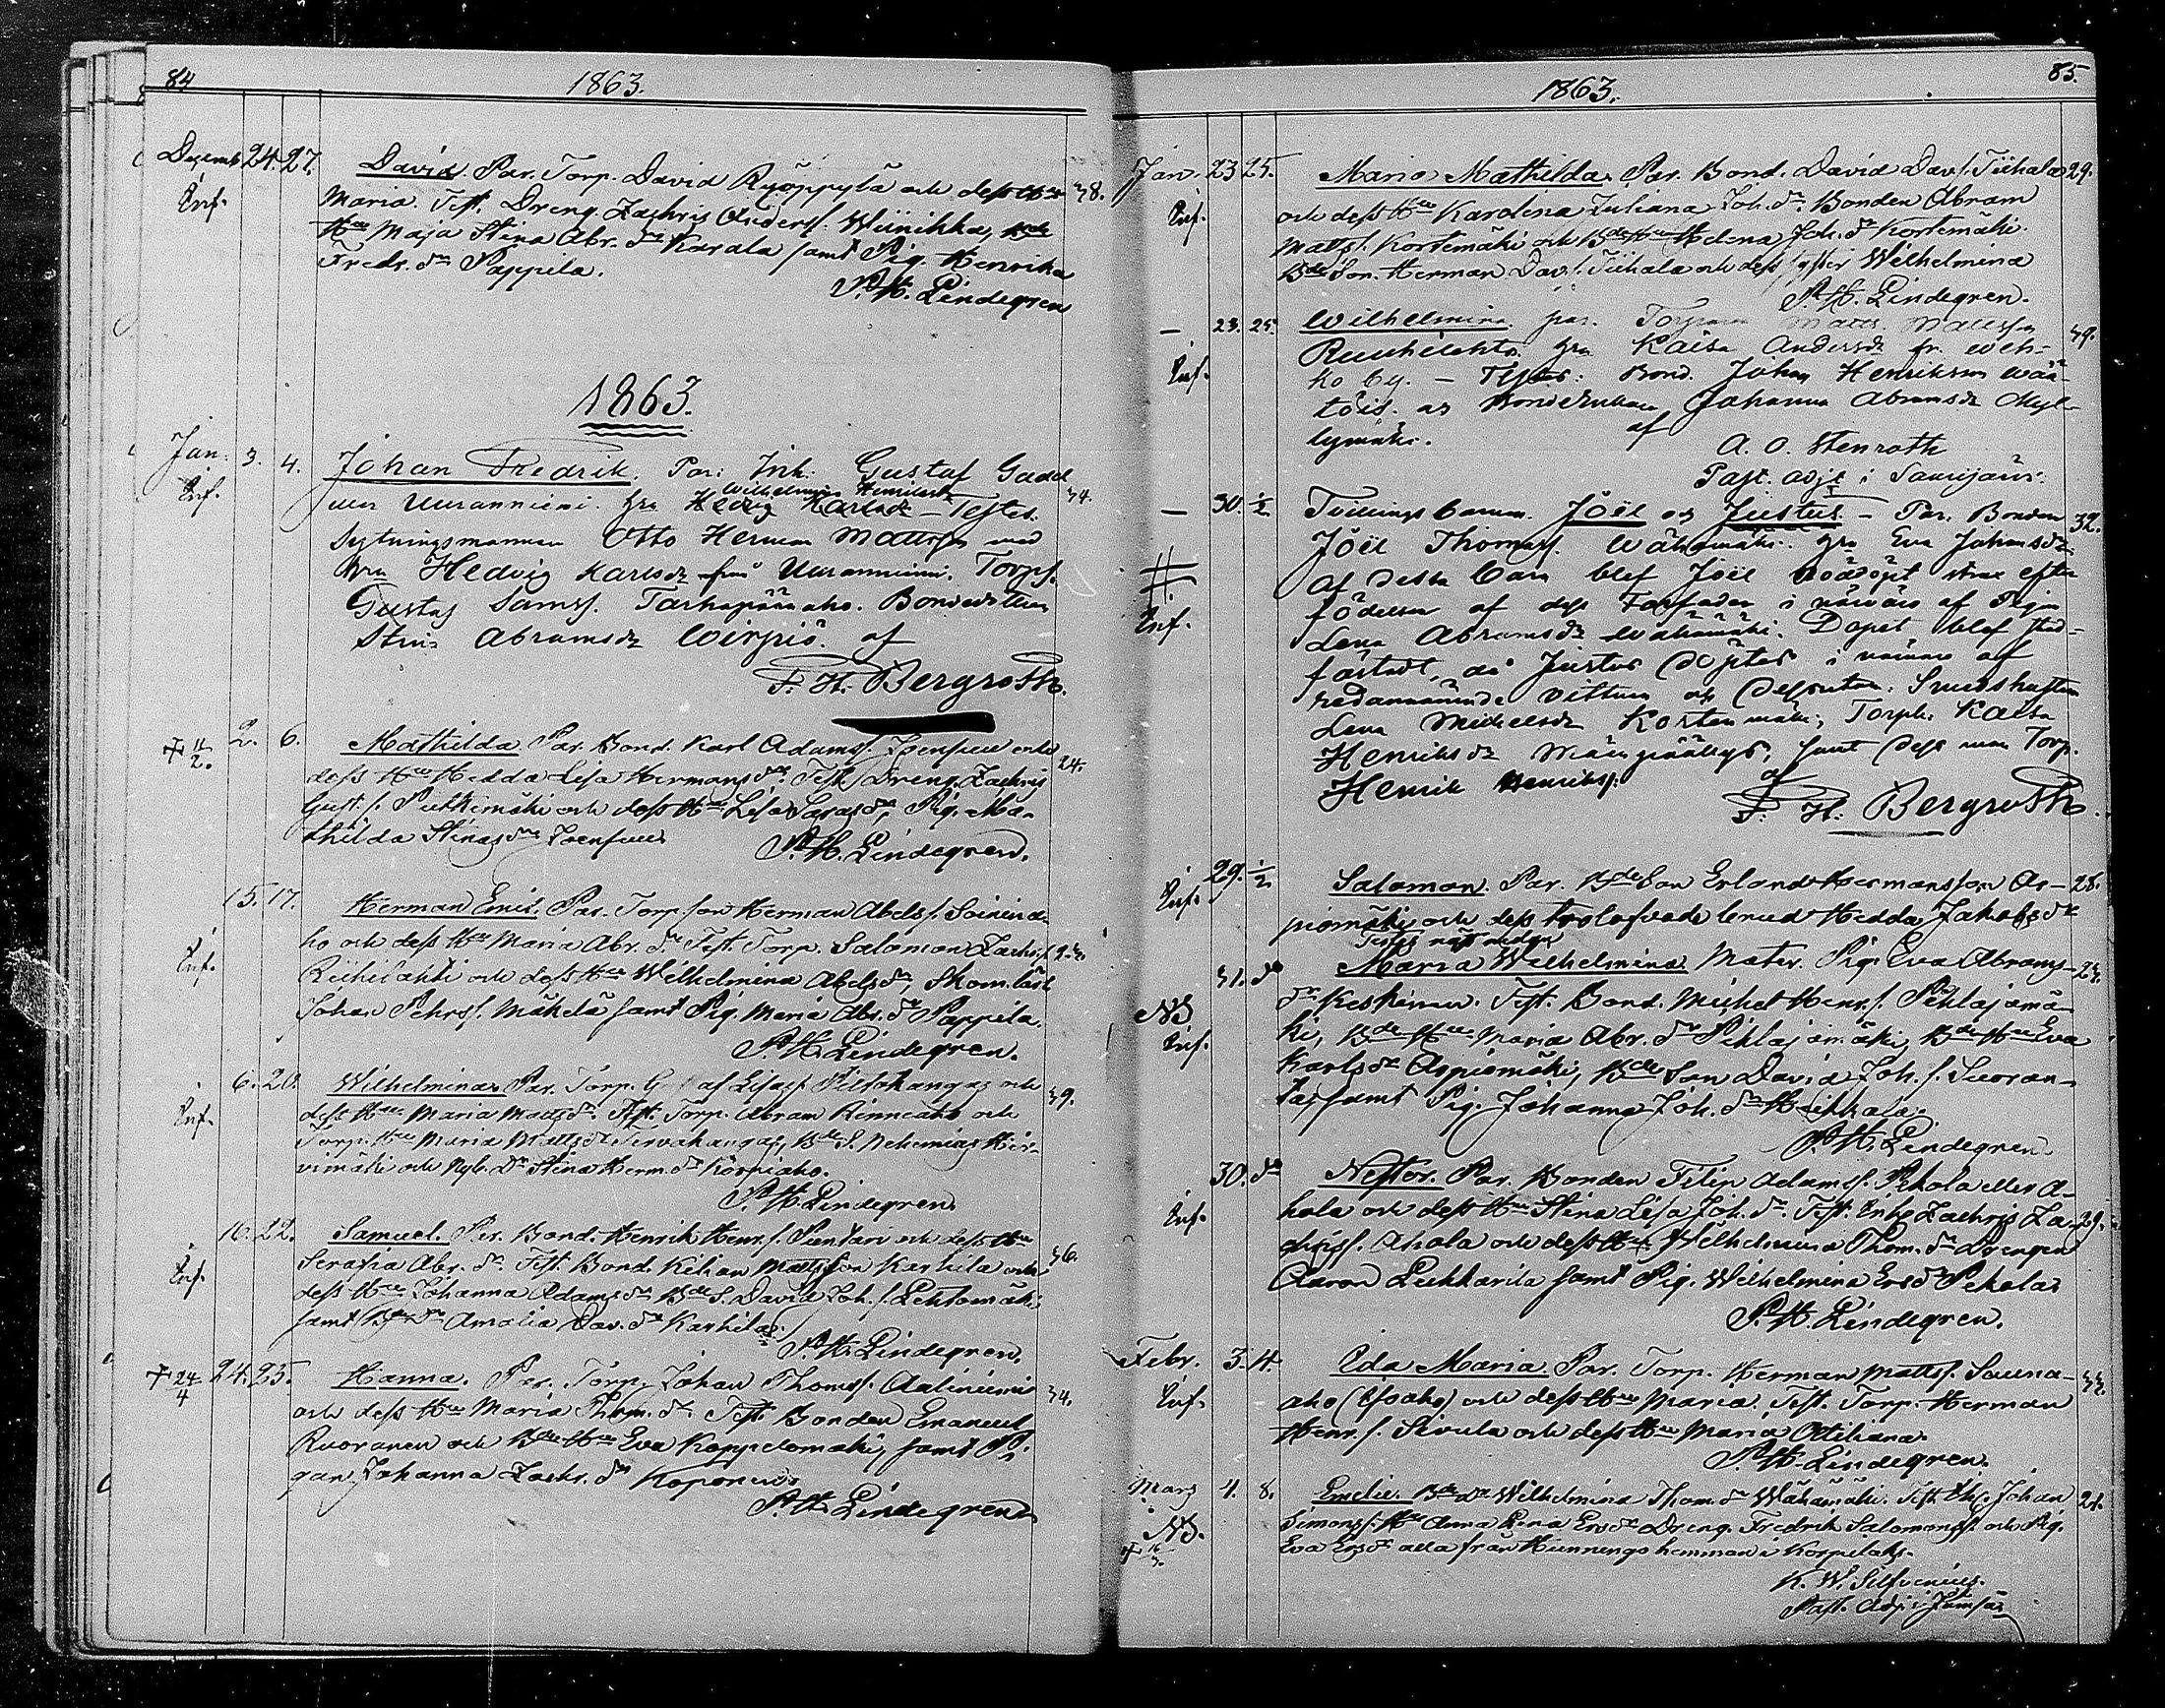 84
1863.
Decemb 24. 27. David. Par. Torp. David Ryöppylä och dess Hu 38.
Inf. Maria. Test. Dreng. Zachris Anderss. Wiinikka,
Hu Maja Stina Abr. dr Karala samt Pig. Henrika
Fredr. dr Pappila.
P. H. Lindegren
1863.
Jan. 3. 4. Johan Fredrik. Par: Inh. Gustaf Gadd
Inf. Uuranniemi. hu Hedvig Karlsdr Wilhelmina Henriksdr – Testes. 34.
Sytningsmannen Otto Herman Mattsson med
hu Hedvig Karlsdr från Uuranniemi. Torps.
Gustaf Samss. Tarhapäänaho. Bondedottren
Stina Abramsdr Wirpiö. af
F. H. Bergroth.
† 11/2. 2. 6. Mathilda. Par. Bond. Karl Adamss. och
dess Hu Hedda Lisa Hermansdr. Test. Dreng. Zachris 24.
Gust. s. Putkimäki och dess Hu Lisa dr, Pig. Ma-
thilda Stinasdr
P. H. Lindegren.
15. 17. Herman Emil. Par. Torp. son Herman Abels s. Soinina-
Inf. ho och dess Hu Maria Abr. dr Test. Torp. Salomon Zachr. s.
Riihilahti och dess Hu Wilhelmina Abelsdr,
Johan Pehrss. Mäkelä samt Pig. Maria Abr. dr Pappila.
P. H. Lindegren.
6. 20. Wilhelmina. Par. Torp. och
Inf. dess Hu Maria Mattsdr. Test. Torp. Abram Rinneaho och 39.
Torp. Hu Maria Mattsdr Tervakangas, Bde S. Nehemias Hir-
vimäki och Stina Herm. dr Korpiaho.
P. H. Lindegren
16. 22. Samuel. Par. Bond. Henrik Henr. s. Puntari och dess Hu
Inf. Serafia Abr. dr. Test. Bond. Kilian Mattsson Karhila och 36.
dess Hu Johanna Adamsdr Bde S. David Joh. s. Lehtomäki,
samt Bde dr Amalia Dav. dr Karhila.
P. H. Lindegren.
† 24/4 24. 25. Hanna. Par. Torp. Johan Thomss. Aaliniemi
och dess Hu Maria Thom. dr. Test. Bonden Emanuel 34.
Ruoranen och Bde Hu Eva Koppelomäki, samt Pi-
gan Johanna Zachr. dr Koponen.
P. H. Lindegren
85.
1863.
Jan. 23 25. Maria Mathilda. Par. Bond. David Dav. s. Tiihala 29.
Inf. och dess Hu Karolina Juliana Joh. dr. Bonden Abram
Matss. Kortemäki och Bde Hu Helena Joh. dr Kortemäki.
Bde Son Herman Dav. s. Tiihala och dess syster Wilhelmina
P. H. Lindegren.
– 23. 25. Wilhelmina. par. Matts Mattsson 39.
Inf. Ruuhilahti. hu Kaisa Andersdr fr. Weh-
ko by. – Testes: Bond. Johan Henriksson Wää-
töis. as Johanna Abramsdr Myl-
lymäki. af
A. O. Stenroth
Past. adj. i Saarijärvi:
– 30. 1/2 Tvillingsbarnen Joël och Justus – Par. Bonden 32.
Joël Thomass. Wähämäki. hu Eva Johansdr.
Inf. Af dessa barn blef Joël nöddöpt strax efter
födelsen af dess Farfader i närvaro af Pigan
Lena Abramsdr Wähämäki. Dopet blef stad-
fästadt, då Justus döptes i närvaro af
nedannämnde vittnen och
Lena Michelsdr Kortemäki, Torph. Kaisa
Henriksdr samt dess man Torp.
Henrik Henrikss. af
F. H. Bergroth.
29. 1/2 Salomon. Par. Bde Son Erland Hermansson Ar- 28.
Inf. piomäki och dess trolofvade brud Hedda Jakobsdr
Testes näst nedan
31. do Maria Wilhelmina Mater. Pig. Eva Abrams-
NB dr Keskinen. Test. Bond. Michel Henr. s. Pihlajamä-
Inf. ki, Bde Hu Maria Abr. dr Pihlajamäki, Bde Hu Eva
Karlsdr Arpiomäki, Bde Son David Joh. s. Suoran-
ta, samt Pig. Johanna Joh. dr Heikkala.
P. H. Lindegren
30. do Nestor. Par. Bonden Filip Adamss. Pekola eller A-
Inf. hola och dess Hu Stina Lisa Joh. dr. Test. Enkl. Zachris Za- 29.
chriss. Ahola och dess Hu Wilhelmina Thom. dr Drengen
Aaron Leikkarila samt Pig. Wilhelmina Ersdr Pekola
P. H. Lindegren.
Febr. 3. 4. Ida Maria. Par. Torp. Herman Mattss. Sauna-
Inf. aho (Isoaho) och dess Hu Maria. Test. Torp. Herman
Henr. s. Sivula och dess Hu Maria Otiliana.
P. H. Lindegren.
Mars 4. 8. Emelie. Bde dr Wilhelmina Thom. dr Wähämäki. Test. Johan 24.
NB. Simonss. Hu Anna Lena Ersdr Dreng. Fredrik Salomonss. och Pig.
† 16/3. Eva Ersdr alla från Hinnengo hemman i Korpilaks.
K. W. Silfvenius.
Past. Adj. i Jämsä